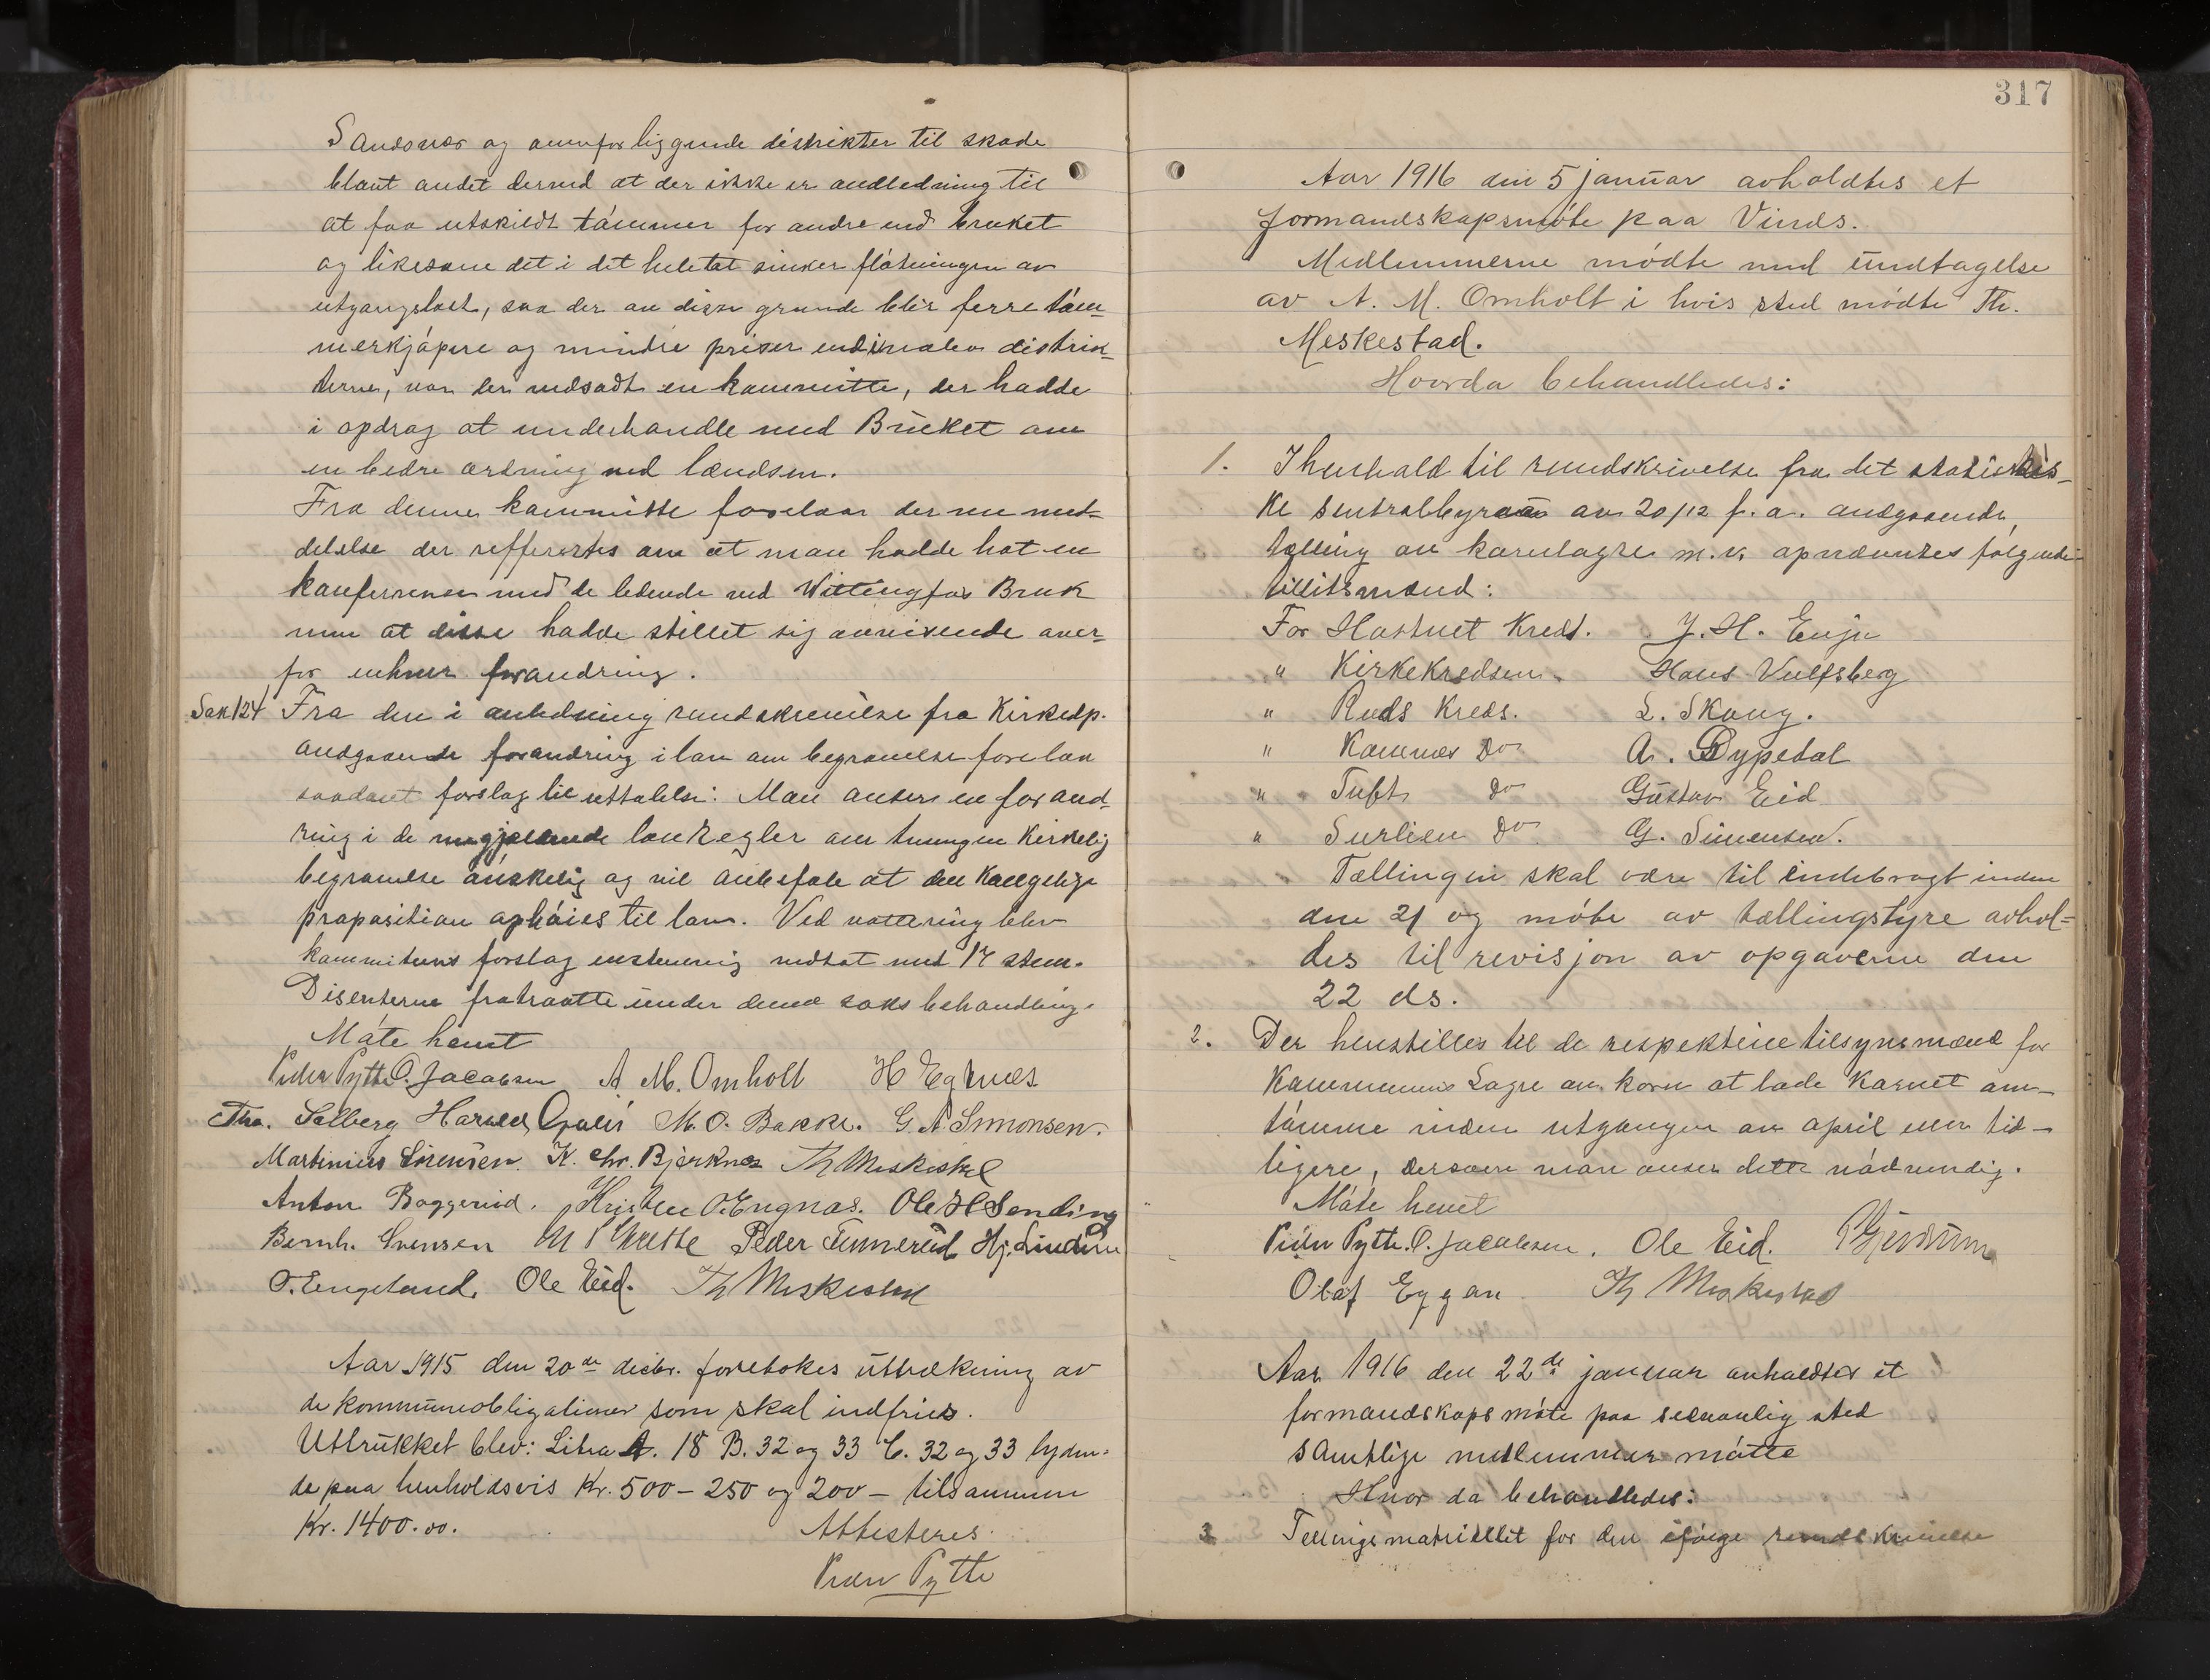 Sandsvær og ovenforliggende distrikter til skade
blant andet derved at der ikke er andledning til
at faa utskildt tømmer for andre end bruket
og likesom det i det heletat sinker fløtningen av
utgangslast, saa der av disse grunde blir ferre tøm-
merkjøpere og mindre priser end i nabo distrik-
terne, var der nedsadt en kommitte, der hadde
i opdrag at underhandle med Bruket om
en bedre ordning ved lændsen.
Fra denne kommitte forelaar der nu med-
delelse der refferertes om at man hadde hat en
konferense med de ledende ved Wittingfos Bruk
men at disse hadde stillet sig avvisende over-
for enhver forandring.
Sak 124 Fra den i anledning rundskrivelse fra Kirkedp.
andgaaende forandring i lov om begravelse forelaa
saadant forslag til uttalelse: Man anser en forand-
ring i de nugjældende lovregler om tvungen Kirkelig
begravelse ønskelig og vil anbefale at den Kongelige
proposition ophøies til lov. Ved vottering blev
kommiteens forslag enstemmig vedtat med 17 stem.
Disenterne fratraatte under denne saks behandling.
Møte hævet
Peder Pytte O. Jacobsen A. M. Omholt H Egtnes
Tho. Solberg Harald M. O. Bakke. G. A Simonsen.
Martinius Sørensen. K. Chr. Bjerknes Th Meskestad
Anton Baggerud. Kristen O. Engnæs. Ole H Sending
Bernh. Svensen Peder Temmerud Hj. Lindem
O. Engeland. Ole Eid. Th Meskestad
Aar 1915 den 20de decbr. foretokes uttrækning av
de kommuneobligationer som skal indfries.
Uttrukket blev: Litra A. 18 B. 32 og 33 C. 32 og 33 lyden-
de paa henholdsvis Kr. 500 - 250 og 200 - tilsammen
Kr. 1400.00. Attesteres
Peder Pytte
317
Aar 1916 den 5 januar avholdtes et
formandskapsmøte paa Vinds.
Medlemmerne mødte med undtagelse
av A. M. Omholt i hvis sted mødte Th.
Meskestad.
Hvorda behandledes:
1. I henhald til rundskrivelse fra det statistis-
ke Sentralbyraa av 20/12 f. a. andgaaende
tælling av kornlagre m.v. opnævntes følgende
tillitsmænd:
For Hostvet Kreds. J. H. Enge
" Kirkekredsen. Hans Vulfsberg
" Ruds Kreds. L. Skaug.
" Komnes Do A. Dypedal
" Tufts do Gustav Eid
" Surlien Do G. Simensen.
Tællingen skal være til endebragt inden
den 21 og møte av tællingstyre avhol-
des til revisjon av opgaverne den
22 ds.
2. Der henstilles til de respektive tilsynsmænd for
Kommunens Lagre av korn at lade Kornet om-
tømme inden utgangen av april eller tid-
ligere, dersom man anser dette nødvendig.
Møte hevet
Peder Pytte. O. Jacobsen. Ole Eid.
Olaf Eggar Th Meskestad
Aar 1916 den 22de januar avholdtes et
formandskaps møte paa sedvanlig sted
samtlige medlemmer møtte
Hvor da behandledes:
3 Tellingsmatriellet for den ifølge rundskrivelse